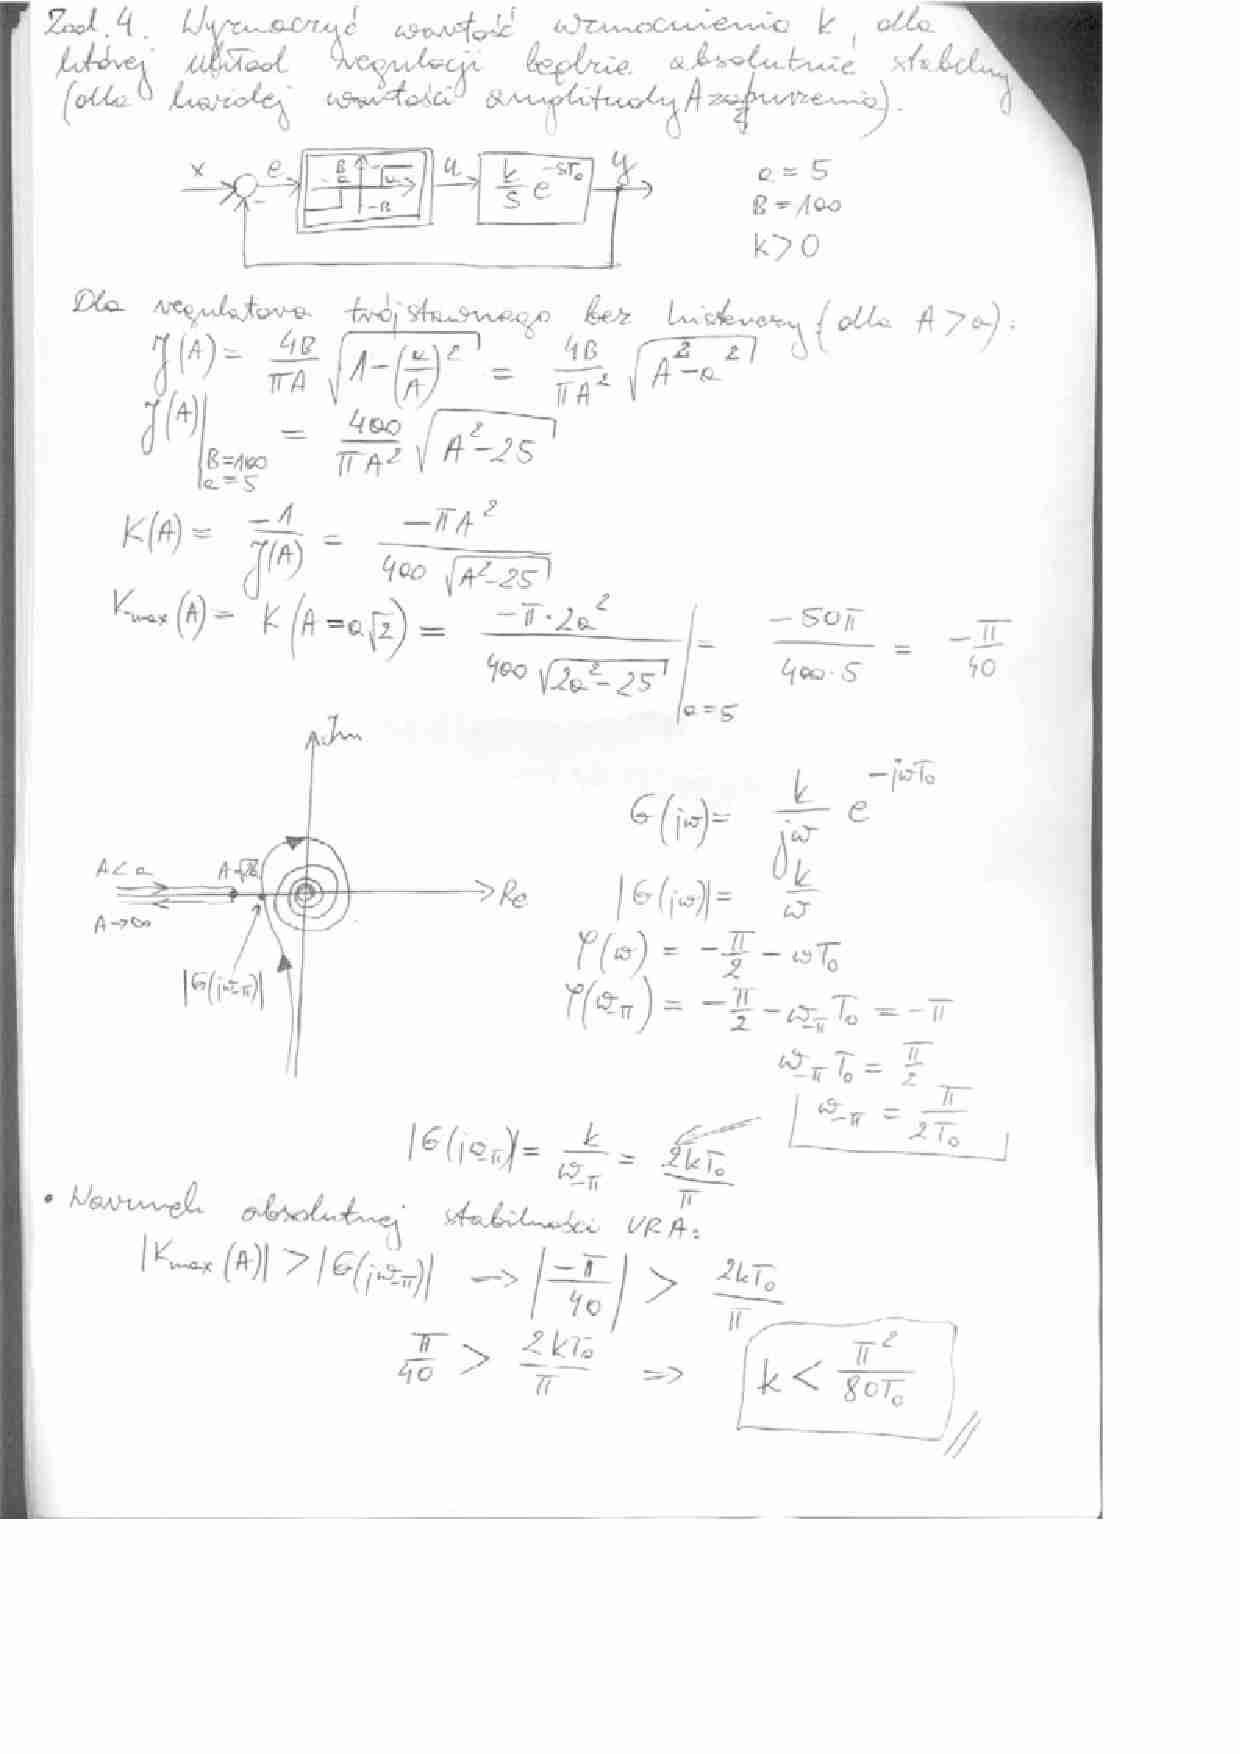 Zad. 4. Wyznaczyć wartość wzmocnienia k, dla
której układ regulacji będzie absolutnie stabilny
(dla każdej wartości amplitudy A zaburzenia).
x e B a -a -B u k/s e^{-sT₀} y
-
a = 5
B = 100
k > 0
Dla regulatora trójstawnego bez histerezy (dla A > a):
J(A) = 4B/(πA) √(1-(a/A)²) = 4B/(πA²) √(A²-a²)
J(A)|_{B=100, a=5} = 400/(πA²) √(A²-25)
K(A) = -1/J(A) = -πA²/(400 √(A²-25))
K_max(A) = K(A=a√2) = -π·2a²/(400 √(2a²-25)) |_{a=5} = -50π/(400·5) = -π/40
Jm
A<a
A→∞
Re
|G(jω_{-π})|
G(jω) = k/(jω) e^{-jωT₀}
|G(jω)| = k/ω
φ(ω) = -π/2 - ωT₀
φ(ω_{-π}) = -π/2 - ω_{-π} T₀ = -π
ω_{-π} T₀ = π/2
ω_{-π} = π/(2T₀)
|G(jω_{-π})| = k/ω_{-π} = 2kT₀/π
• Warunek absolutnej stabilności URA:
|K_max(A)| > |G(jω_{-π})| → |-π/40| > 2kT₀/π
π/40 > 2kT₀/π ⇒ k < π²/(80T₀)